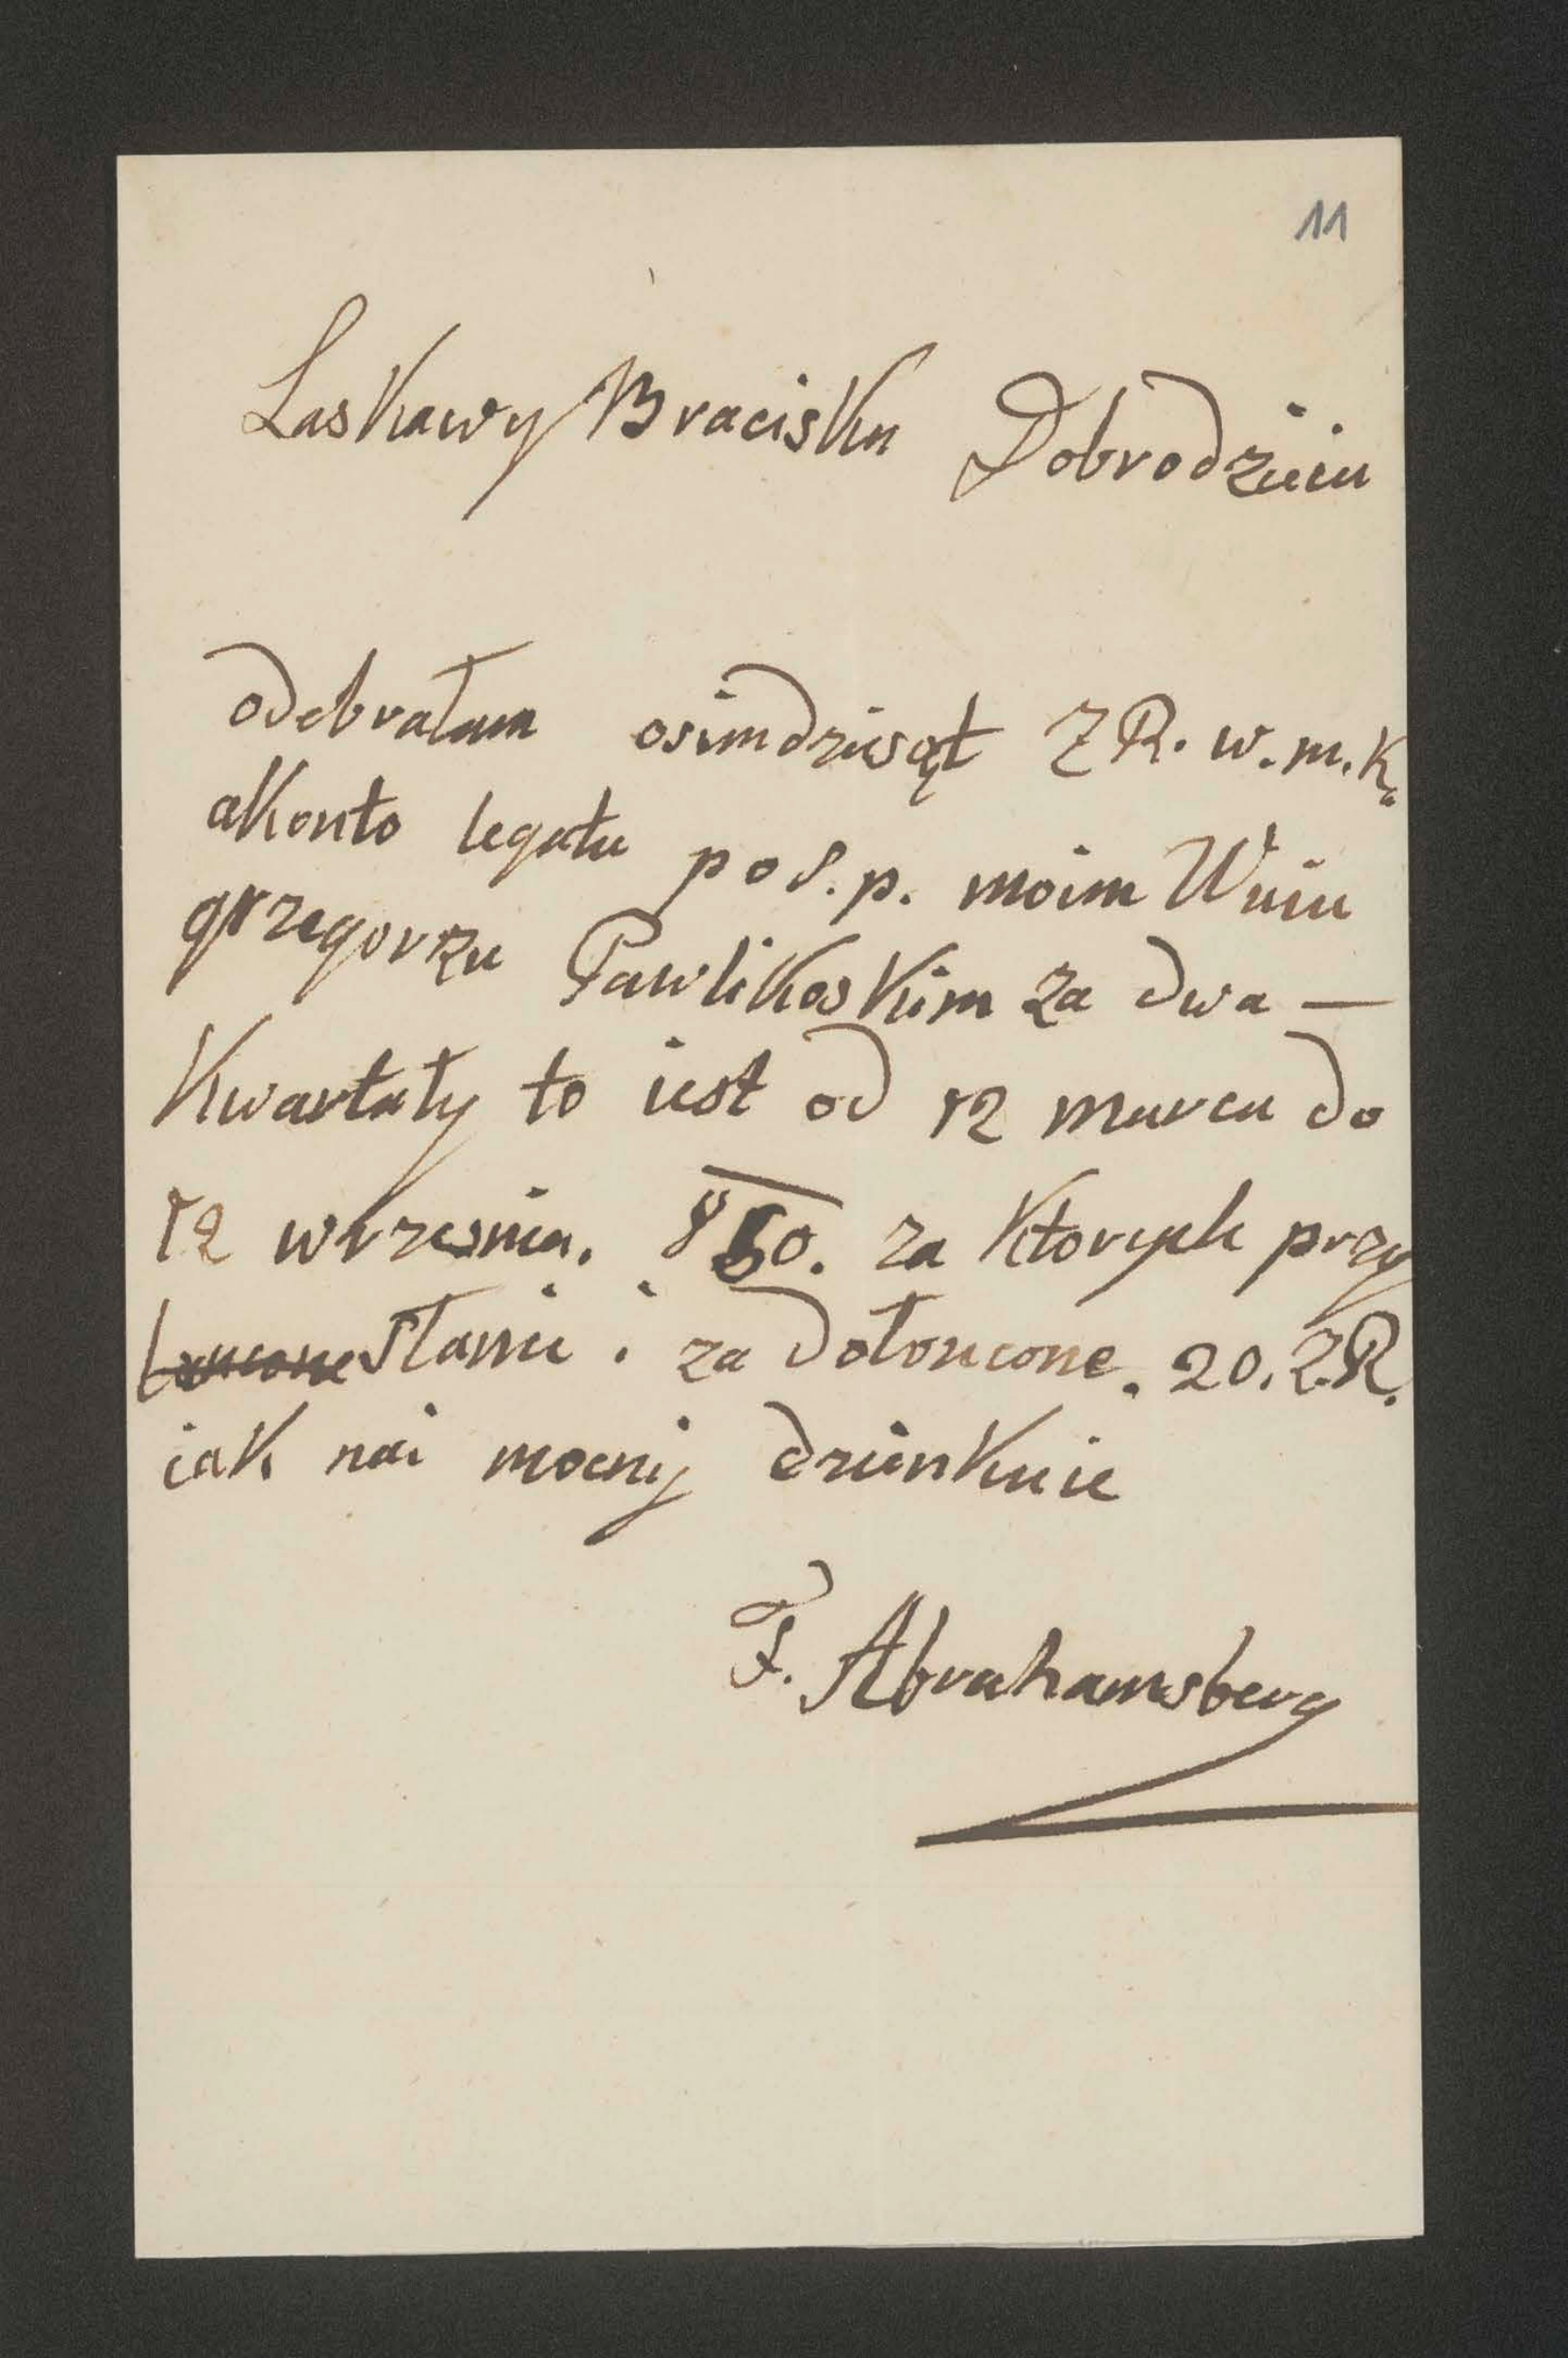 11
Laskawy Bracisku Dobrodzieiu
odebrałam osimdzisąt ZR. w. m. K.
akonto legatu po S. p. moim Wuiu
grzegorzu Pawlikoskim za dwa —
Kwartały to iest od 12 marca do
12 wrzesnia. 850. za Ktorych przy
słanie i za dołoncone. 20. ZR.
iak nai mocnij dziinkuie
F. Abrahamsberg